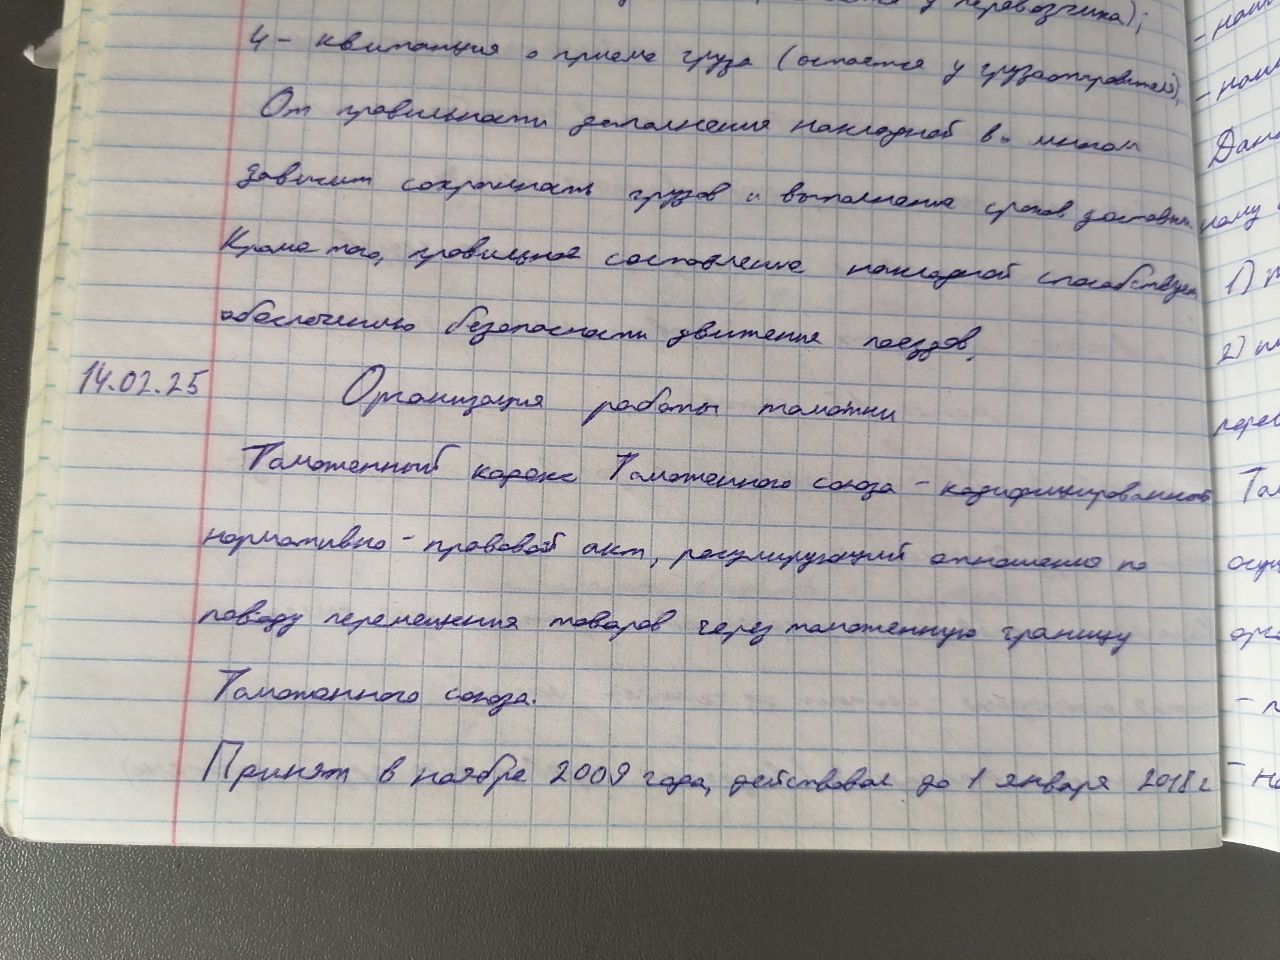 у перевозчика);
4 - квитанция о приеме груза (остается у грузоотправителя),
От правильности заполнения накладной во многом
зависит сохранность грузов и выполнение сроков доставки.
Кроме того, правильное составление накладной способствует
обеспечению безопасности движения поездов.
14.02.25 Организация работы таможни
Таможенный кодекс Таможенного союза - кодифицированный
нормативно - правовой акт, регулирующий отношения по
поводу перемещения товаров через таможенную границу
Таможенного союза.
Принят в ноябре 2009 года, действовал до 1 января 2018 г
1)
2)